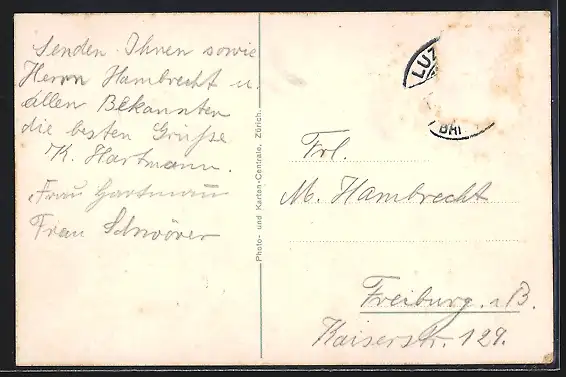 Senden Ihnen sowie
Herrn Hambrecht u.
allen Bekannten
die besten Grüsse
K. Hartmann.
Frau Hartmann
Frau
Photo- und Karten-Centrale, Zürich.
LUZ
BRI
Frl.
M. Hambrecht
Freiburg. i/B.
Kaiserstr. 129.